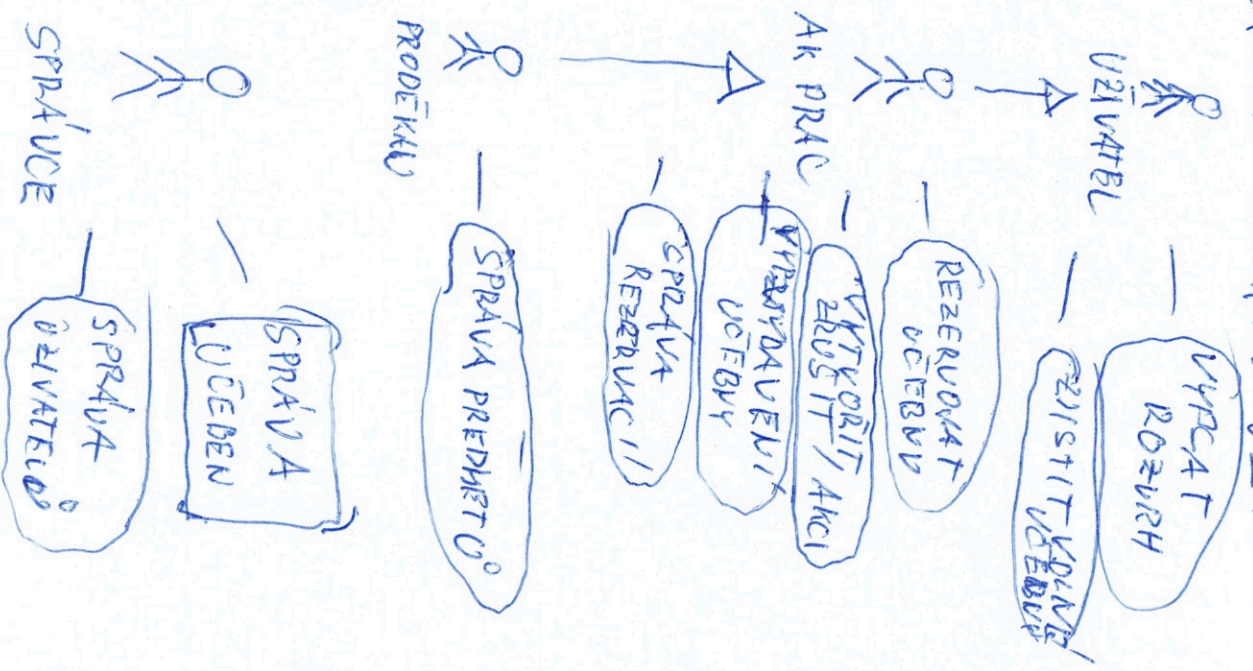 UŽIVATEL
VYPSAT
ROZVRH
ZJISTIT VOLNÉ
UČEBNY
AK PRAC
REZERVOVAT
UČEBNU
VYTVOŘIT /
ZRUŠIT AKCI
VYBAVENÍ
UČEBNY
SPRÁVA
REZERVACÍ
PRODĚKAN
SPRÁVA PŘEDMĚTŮ
SPRÁVCE
SPRÁVA
UČEBEN
SPRÁVA
UŽIVATELŮ